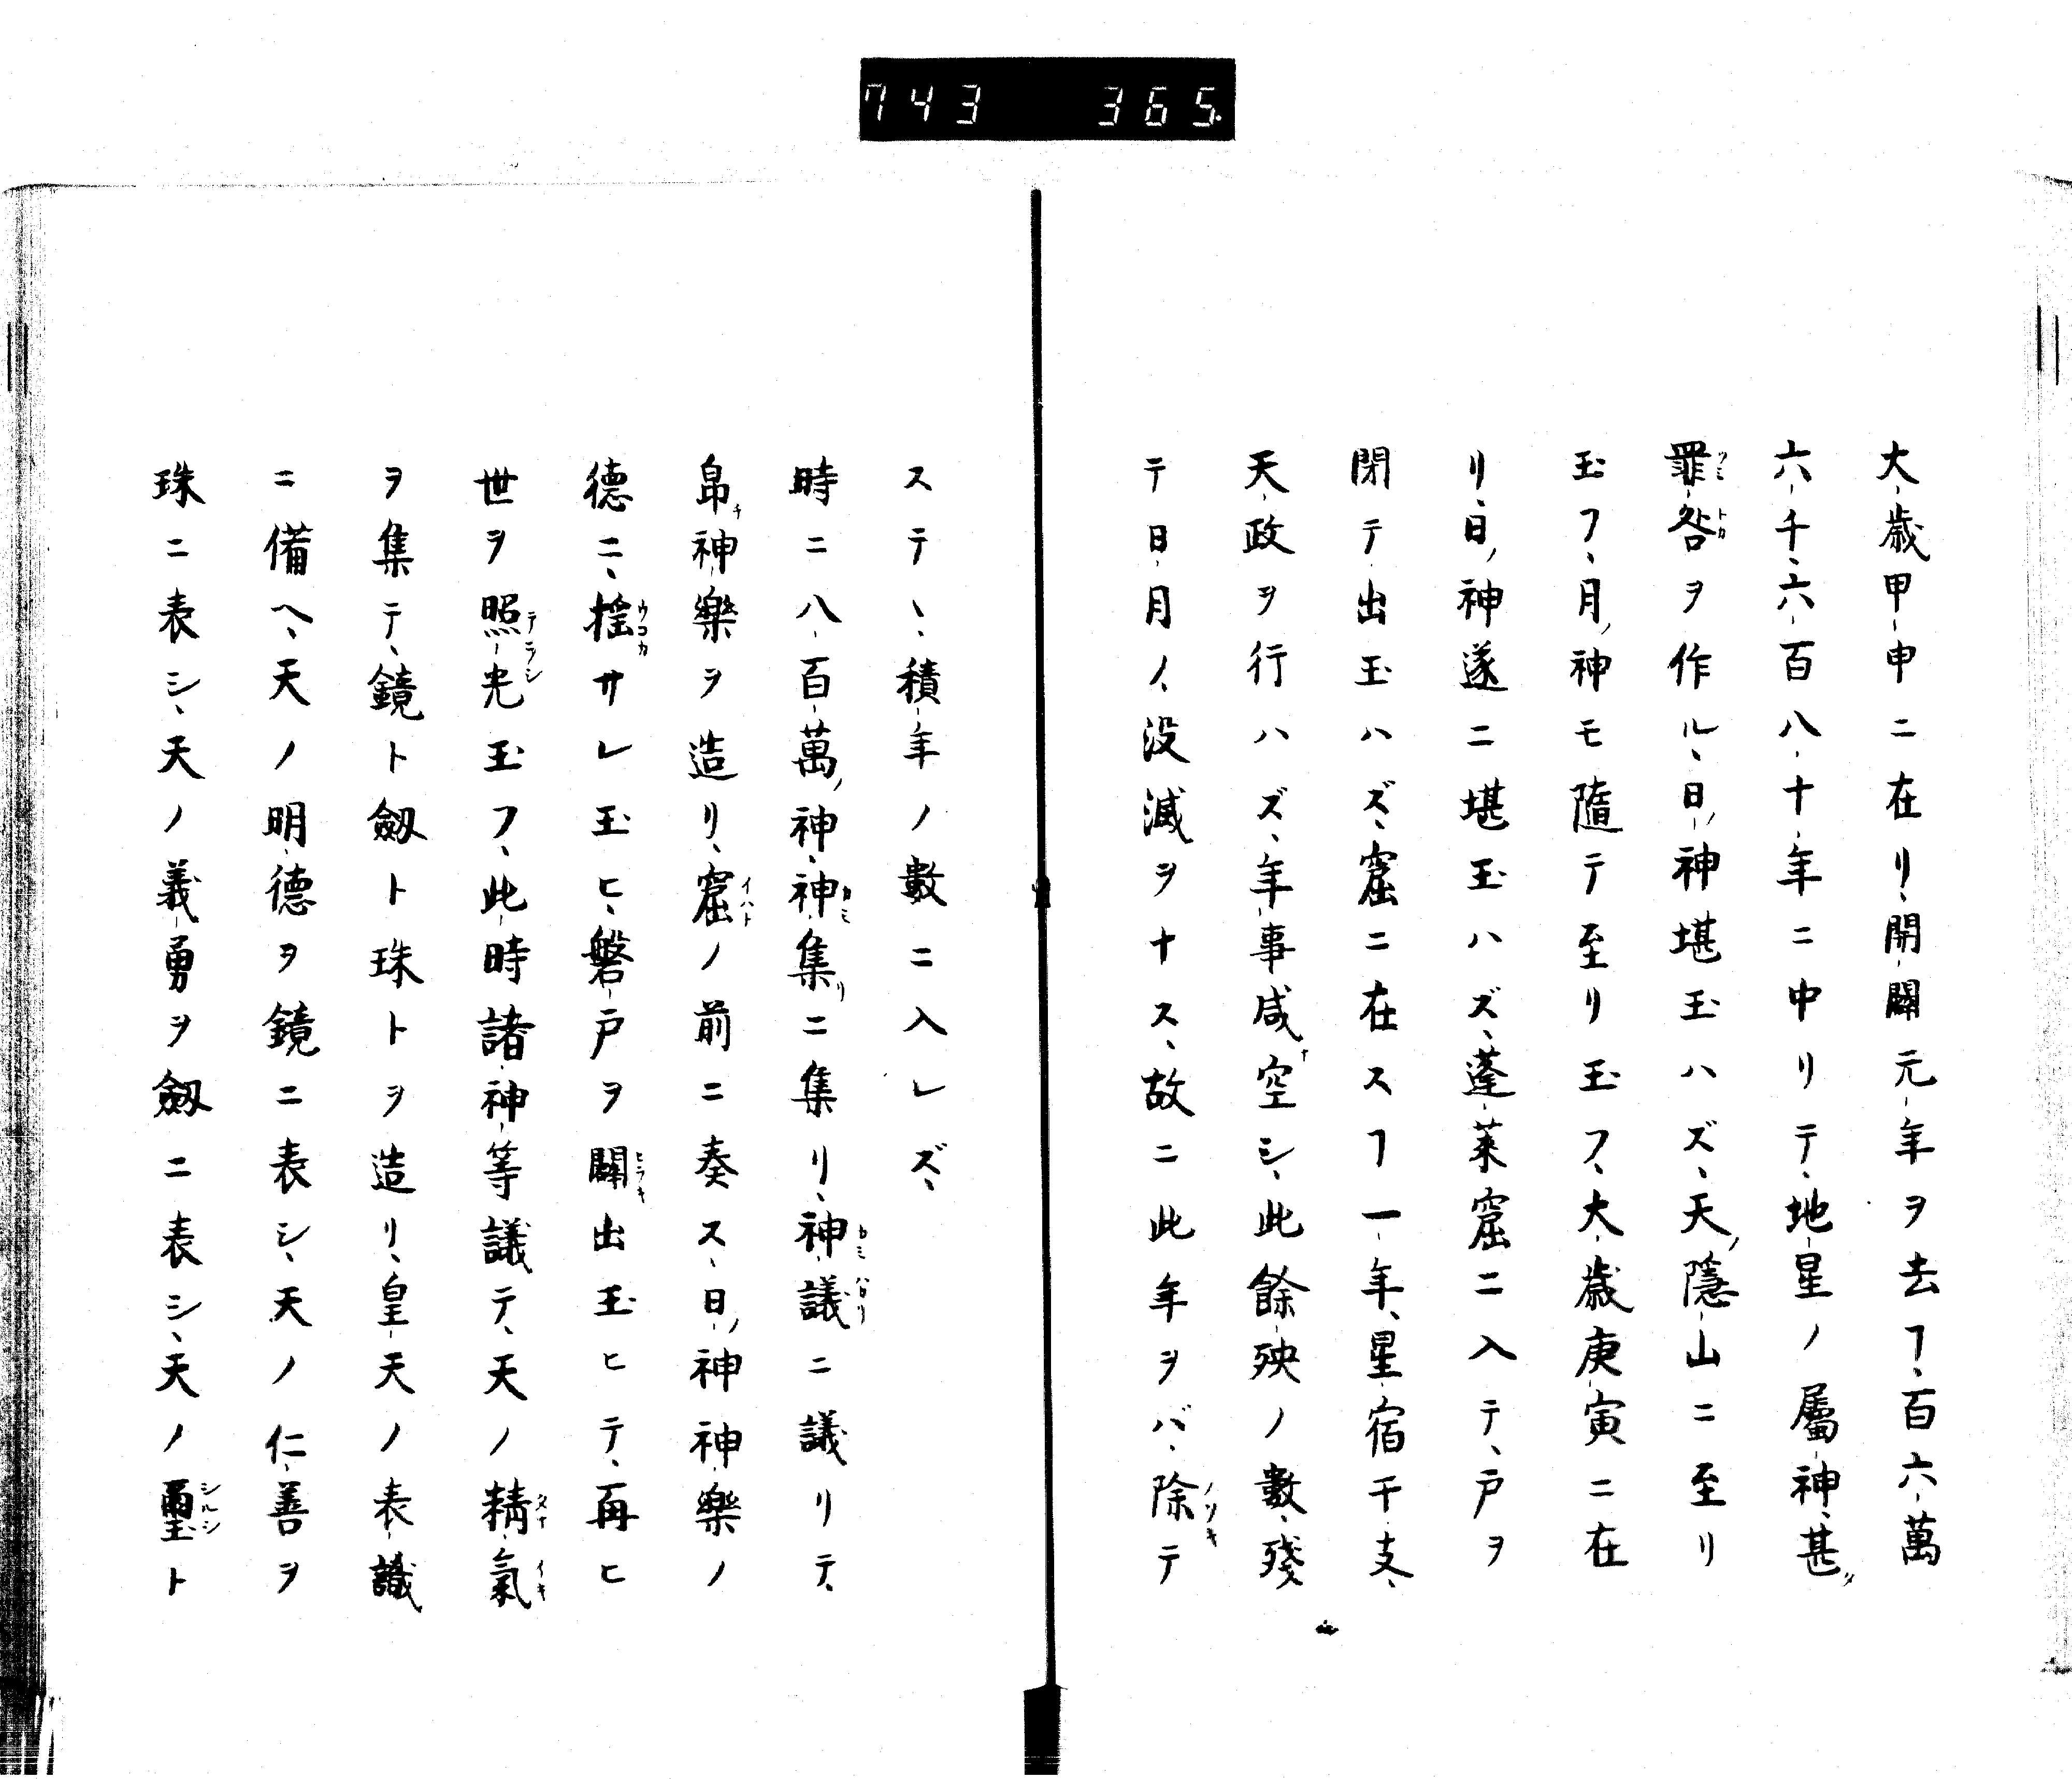 743 365.
大歳甲申ニ在リ、開闢元年ヲ去ヿ、百六萬
六千、六百八十年ニ中リテ、地星ノ屬神、甚
罪咎ヲ作ル、日ノ神堪玉ハズ、天ノ隱山ニ至リ
玉フ、月ノ神モ隨テ至リ玉フ、大歳庚寅ニ在
リ、日ノ神遂ニ堪玉ハズ、蓬萊窟ニ入テ、戸ヲ
閉テ出玉ハズ、窟ニ在スヿ一年、星宿干支、
天政ヲ行ハズ、年事咸空シ、此餘殃ノ數、殘
テ日月ノ、没滅ヲナス、故ニ此年ヲバ、除テ
ステヽ、積年ノ數ニ入レズ、
時ニ八百萬ノ神、神集リニ集リ、神議ニ議リテ、
帛神樂ヲ造リ、窟ノ前ニ奏ス、日ノ神神樂ノ
德ニ、搖サレ玉ヒ、磐戸ヲ闢出玉ヒテ、再ヒ
世ヲ照光玉フ、此時諸神等議テ、天ノ精氣
ヲ集テ、鏡ト劔ト珠トヲ造リ、皇天ノ表識
ニ備ヘ、天ノ明德ヲ鏡ニ表シ、天ノ仁善ヲ
珠ニ表シ、天ノ義勇ヲ劔ニ表シ、天ノ璽ト